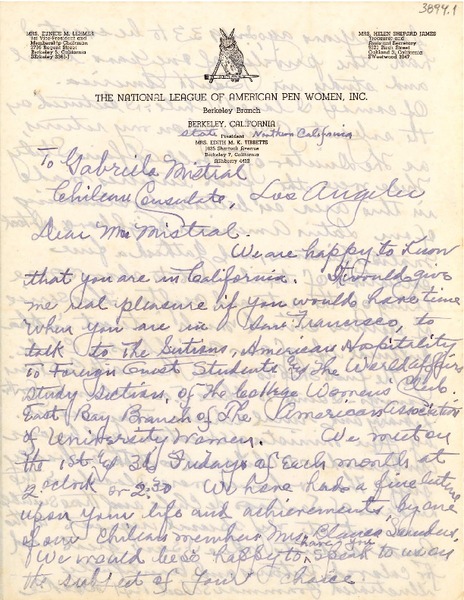 3894.1
MRS. EUNICE M. LEHMER
1st Vice-President and
Membership Chairman
2736 Regent Street
Berkeley 5, California
MRS. HELEN SHEPORD JAMES
Treasurer and
Financial Secretary
Birch Street
Oakland 3, California
THE NATIONAL LEAGUE OF AMERICAN PEN WOMEN, INC.
Berkeley Branch
BERKELEY, CALIFORNIA
State Northern California
President
MRS. EDITH M. K. TIBBETTS
1635 Shattuck Avenue
Berkeley 7, California
To Gabriela Mistral
Chilean Consulate, Los Angeles
Dear Mme Mistral.
We are happy to know
that you are in California. It would give
me real pleasure if you would have time
when you are in San Francisco, to
talk to The Sections, American Hospitality
to Foreign Guest Students & The World Affairs
Study Sections, of The College Women's Club
East Bay Branch of The American Association
of University Women. We meet on
the 1st & 3d Fridays of each month at
2 oclock or 2:30 We have had a fine lecture
upon your life and achievements, by one
of our Chilean members Mrs Blanca
We would be so happy to have you speak to us on
the subject of your choice